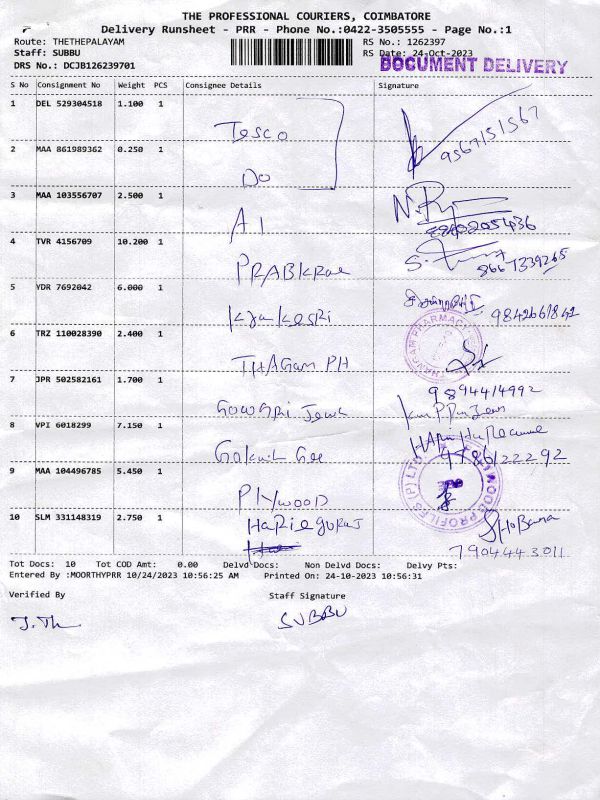 THE PROFESSIONAL COURIERS, COIMBATORE
Delivery Runsheet - PRR - Phone No.:0422-3505555 - Page No.:1
Route: THETHEPALAYAM RS No.: 1262397
Staff: SUBBU RS Date: 24-Oct-2023
DOCUMENT DELIVERY
DRS No.: DCJB126239701
S No Consignment No Weight PCS Consignee Details Signature
1 DEL 529304518 1.100 1 Tesco 9567151567
2 MAA 861989362 0.250 1 Do
3 MAA 103556707 2.500 1 A1
4 TVR 4156709 10.200 1 PRABKRAR 8667339265
5 YDR 7692042 6.000 1 9842661842
6 TRZ 110028390 2.400 1 THAGAM PH
7 JPR 502582161 1.700 1 9894414992
8 VPI 6018299 7.150 1
9 MAA 104496785 5.450 1 PLYWOOD
10 SLM 331148319 2.750 1 HARIEGURUJ SHOBANA
7904443011
Tot Docs: 10 Tot COD Amt: 0.00 Delvd Docs: Non Delvd Docs: Delvy Pts:
Entered By :MOORTHYPRR 10/24/2023 10:56:25 AM Printed On: 24-10-2023 10:56:31
Verified By Staff Signature
SUBBU